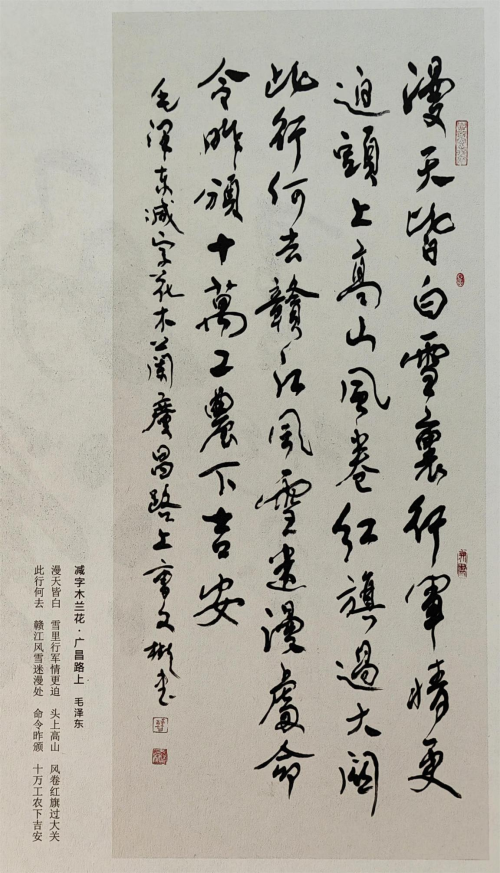 漫天皆白雪裏行軍情更
迫頭上高山風卷红旗過大關
此行何去贛江風雪迷漫處命
令昨頒十萬工農下吉安
毛泽东减字花木蘭廣昌路上
减字木兰花·广昌路上 毛泽东
漫天皆白 雪里行军情更迫 头上高山 风卷红旗过大关
此行何去 赣江风雪迷漫处 命令昨颁 十万工农下吉安